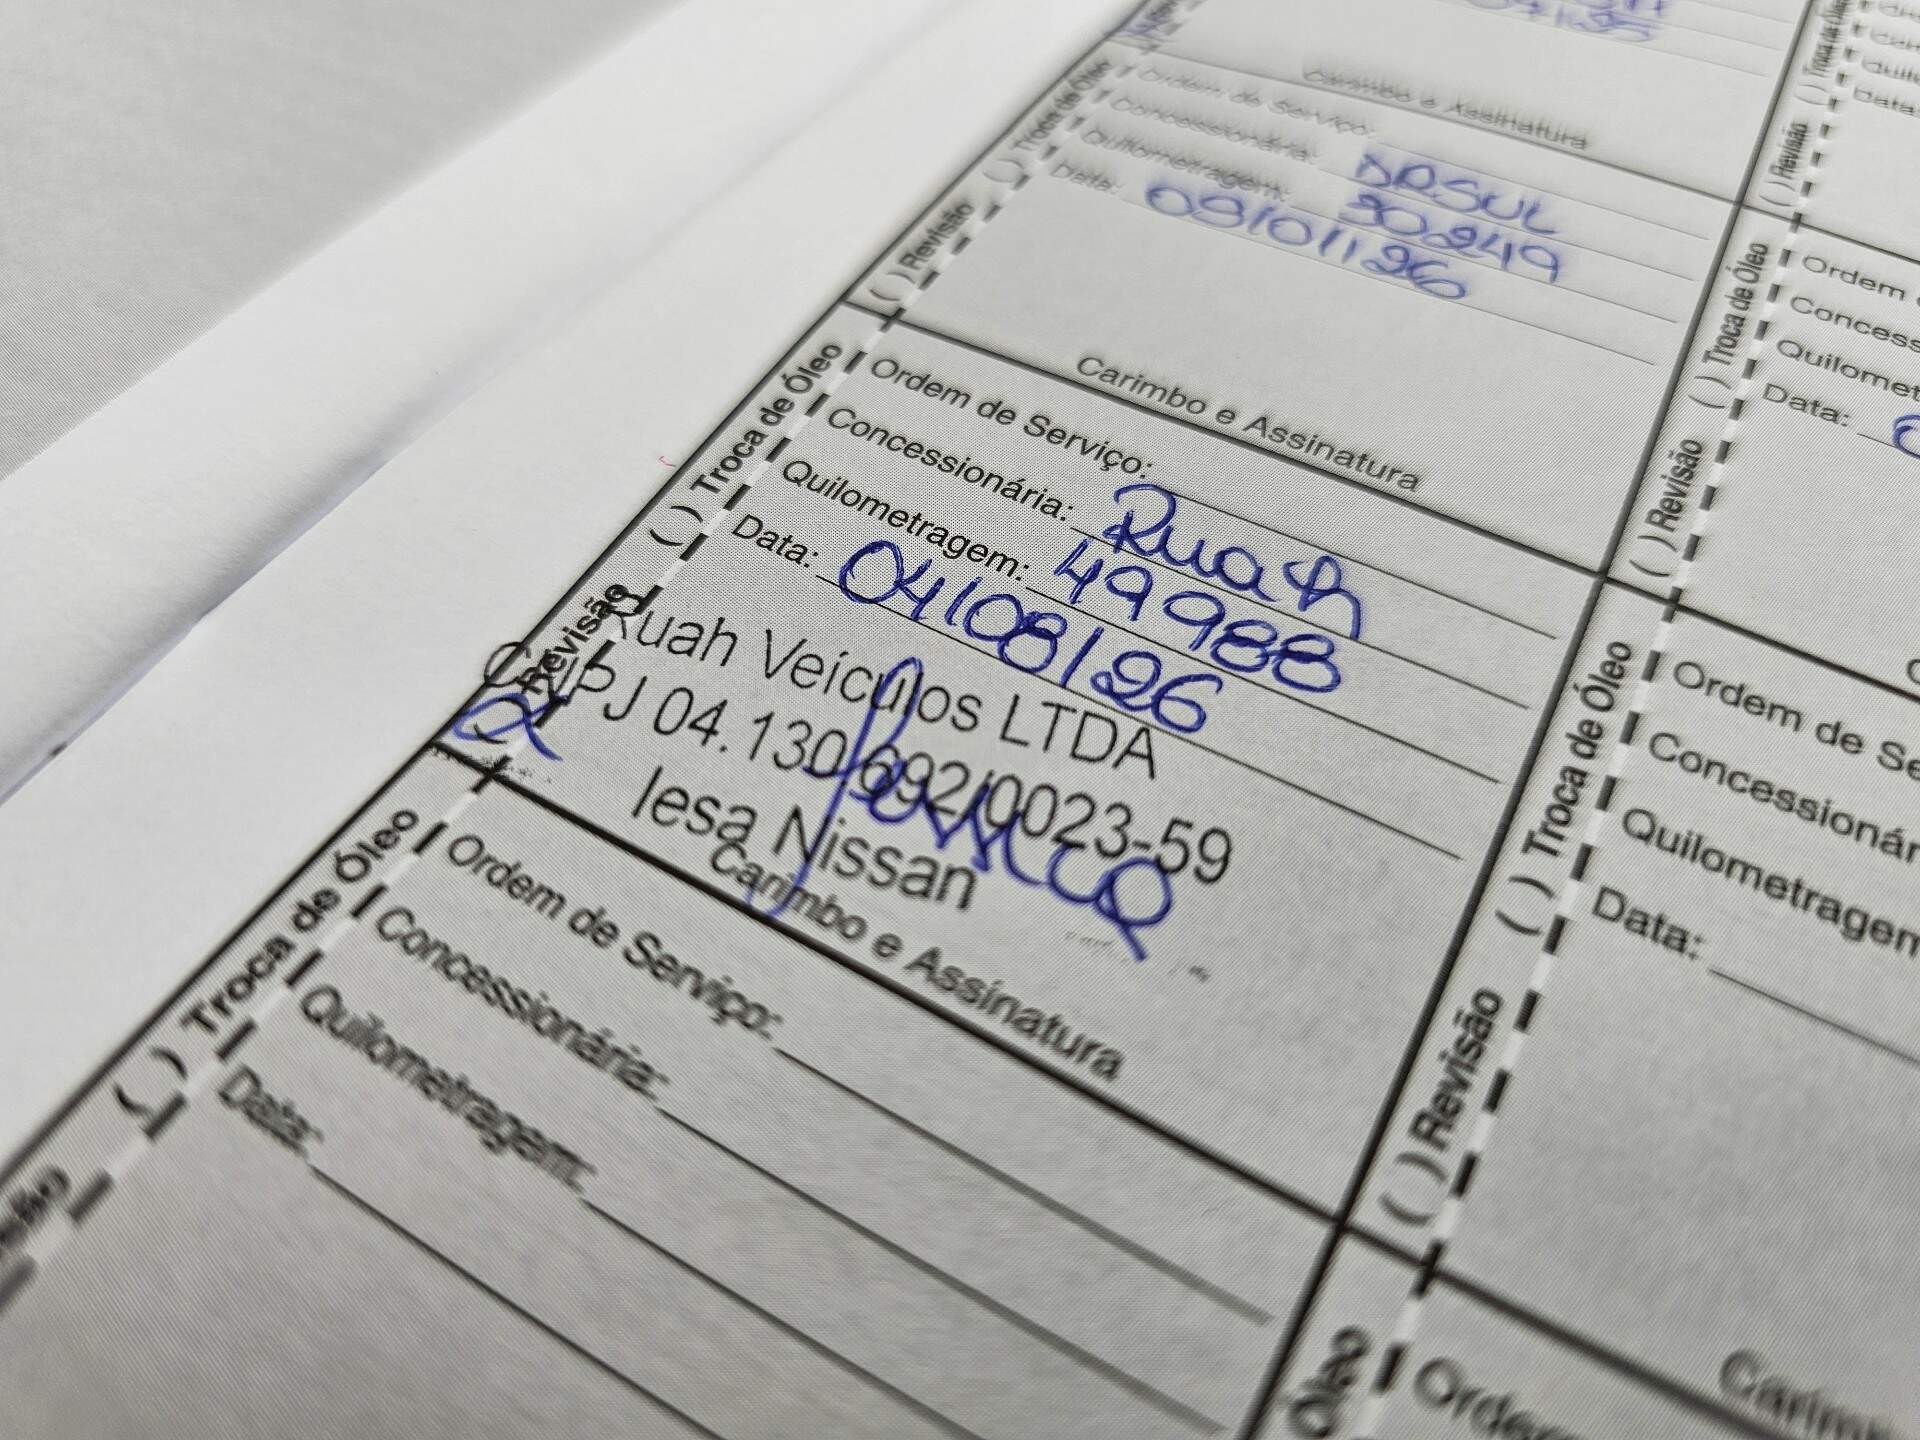 Carimbo e Assinatura
( ) Revisão ( ) Troca de Óleo
Ordem de Serviço:
Concessionária: DRSUL
Quilometragem: 30249
Data: 09/01/26
Carimbo e Assinatura
( ) Revisão ( ) Troca de Óleo
Ordem de Serviço:
Concessionária: Ruah
Quilometragem: 49988
Data: 04/08/26
Ruah Veículos LTDA
CNPJ 04.130.692/0023-59
Iesa Nissan
Carimbo e Assinatura
( ) Troca de Óleo
Ordem de Serviço:
Concessionária:
Quilometragem:
Data:
( ) Revisão
( ) Revisão ( ) Troca de Óleo
Ordem
Data:
( ) Revisão ( ) Troca de Óleo
Ordem de
Quilometragem
Data:
Óleo